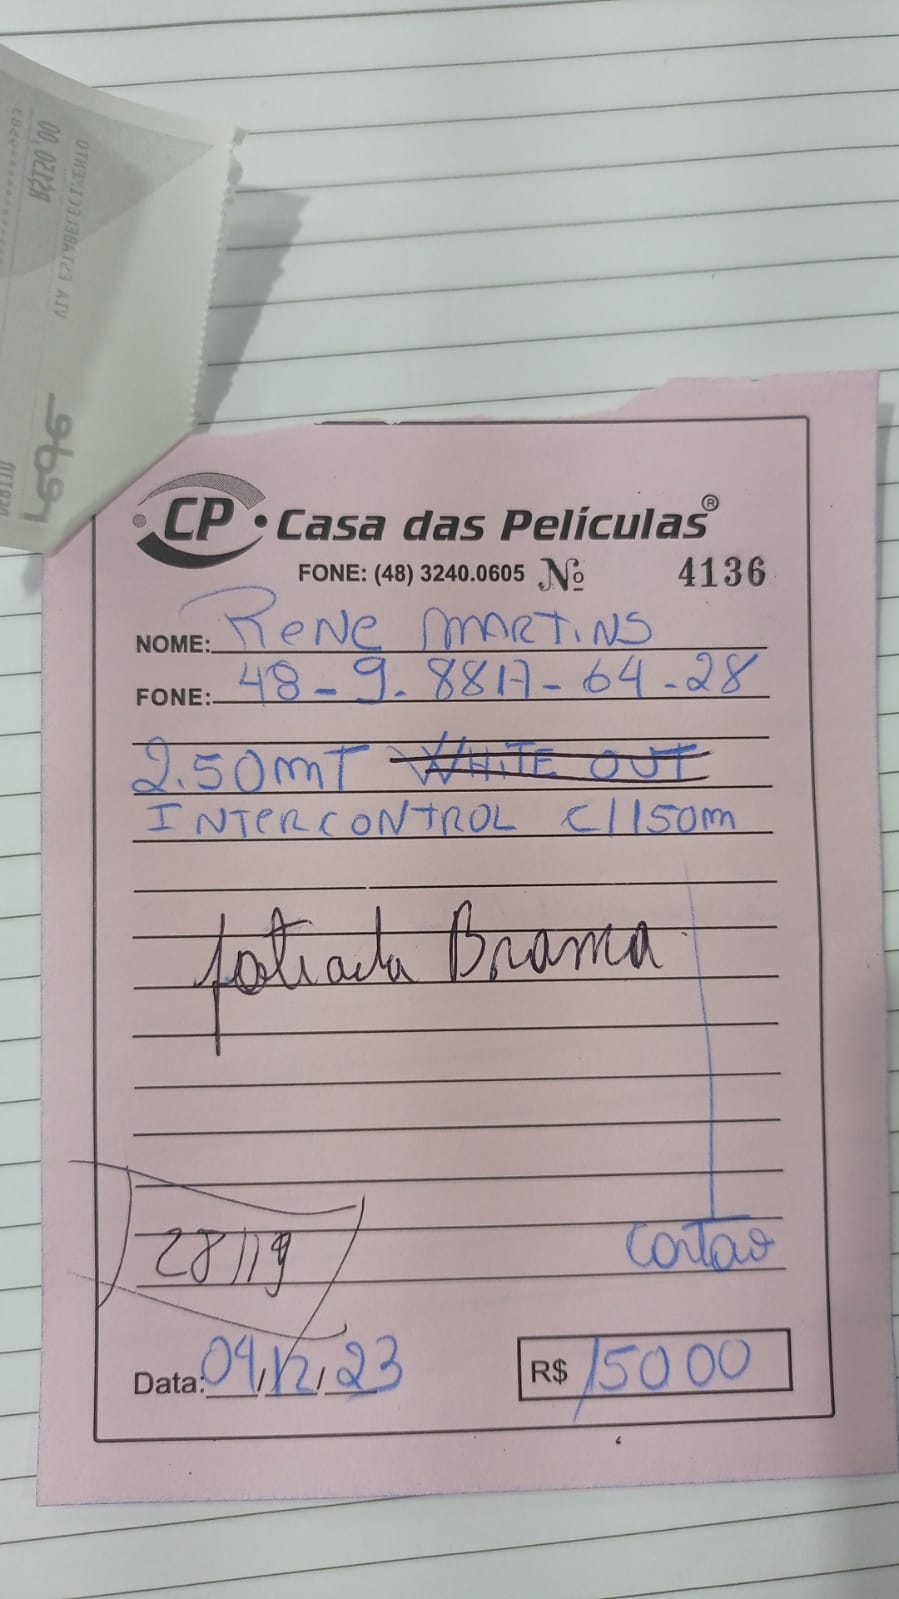 R$150,00
VIA ESTABELECIMENTO
CP Casa das Películas®
FONE: (48) 3240.0605 Nº 4136
NOME: Rene MARTINS
FONE: 48-9.8817-64-28
2.50mT WHITE OUT
INTERCONTROL C/150m
Branca
28119
Cartão
Data: 04/12/23 R$ 15000